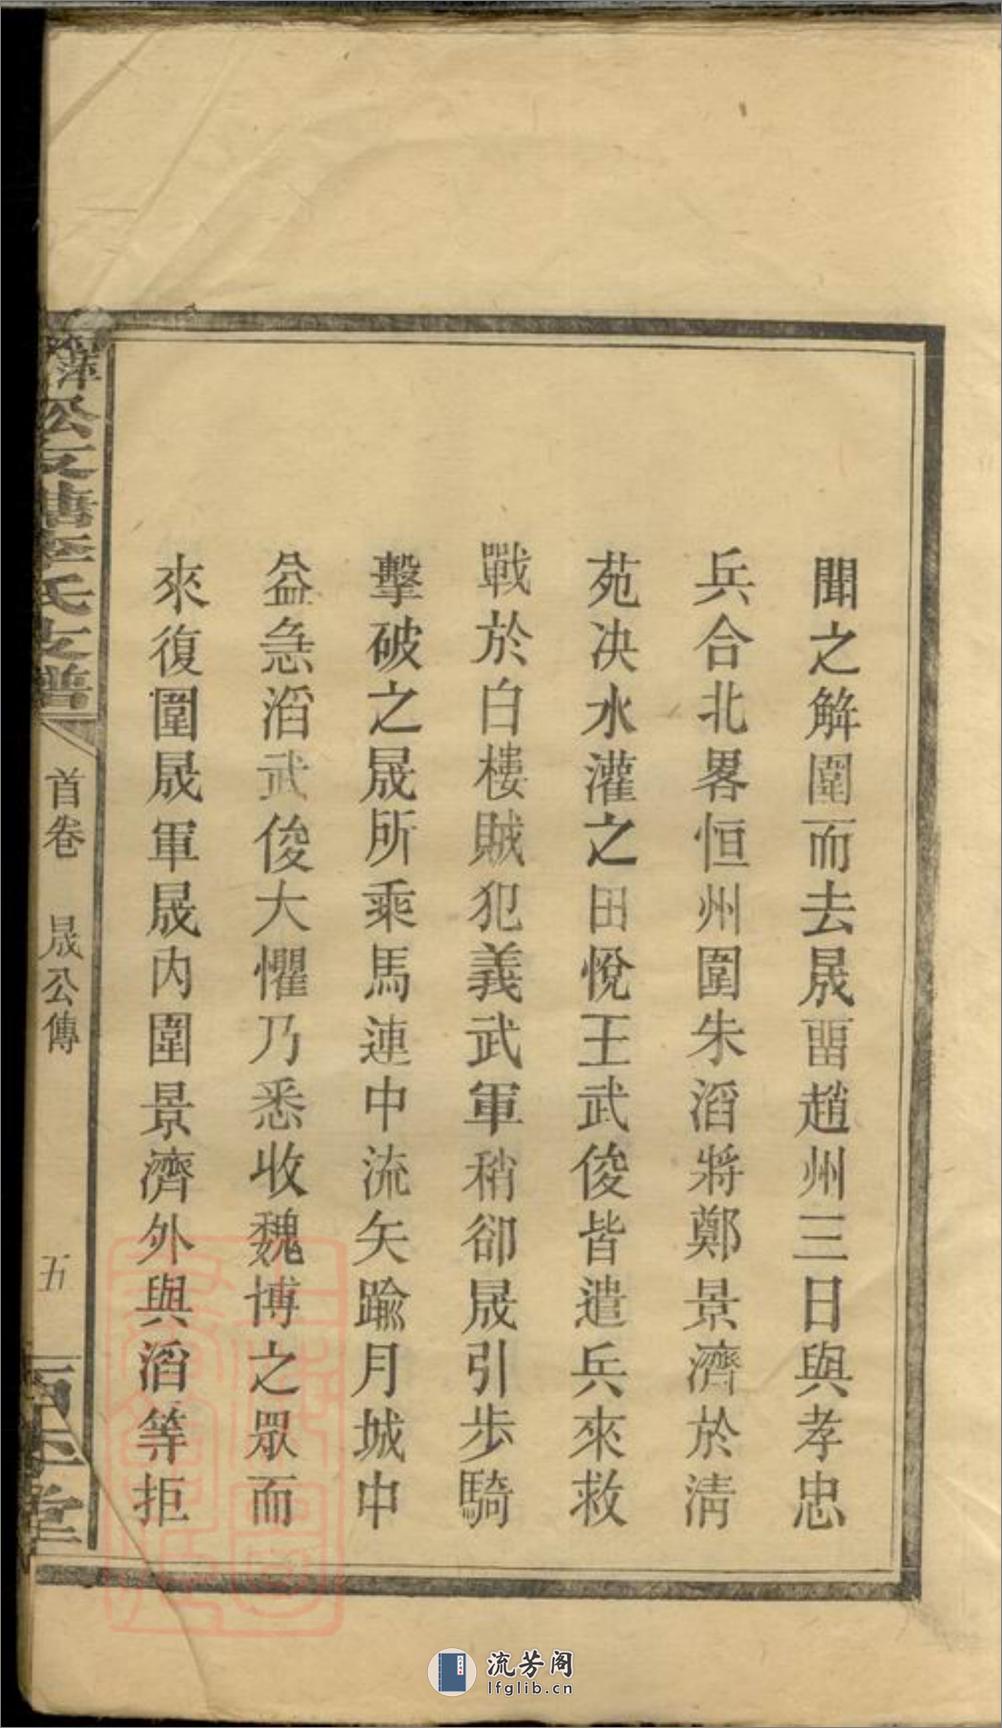 聞之解圍而去晟畱趙州三日與孝忠
兵合北畧恒州圍朱滔將鄭景濟於清
苑决水灌之田悅王武俊皆遣兵來救
戰於白樓賊犯義武軍稍卻晟引步騎
擊破之晟所乘馬連中流矢踰月城中
益急滔武俊大懼乃悉收魏博之眾而
來復圍晟軍晟內圍景濟外與滔等拒
萍 李氏支譜
首卷 晟公傳
五
堂
流芳阁
lfglib.cn